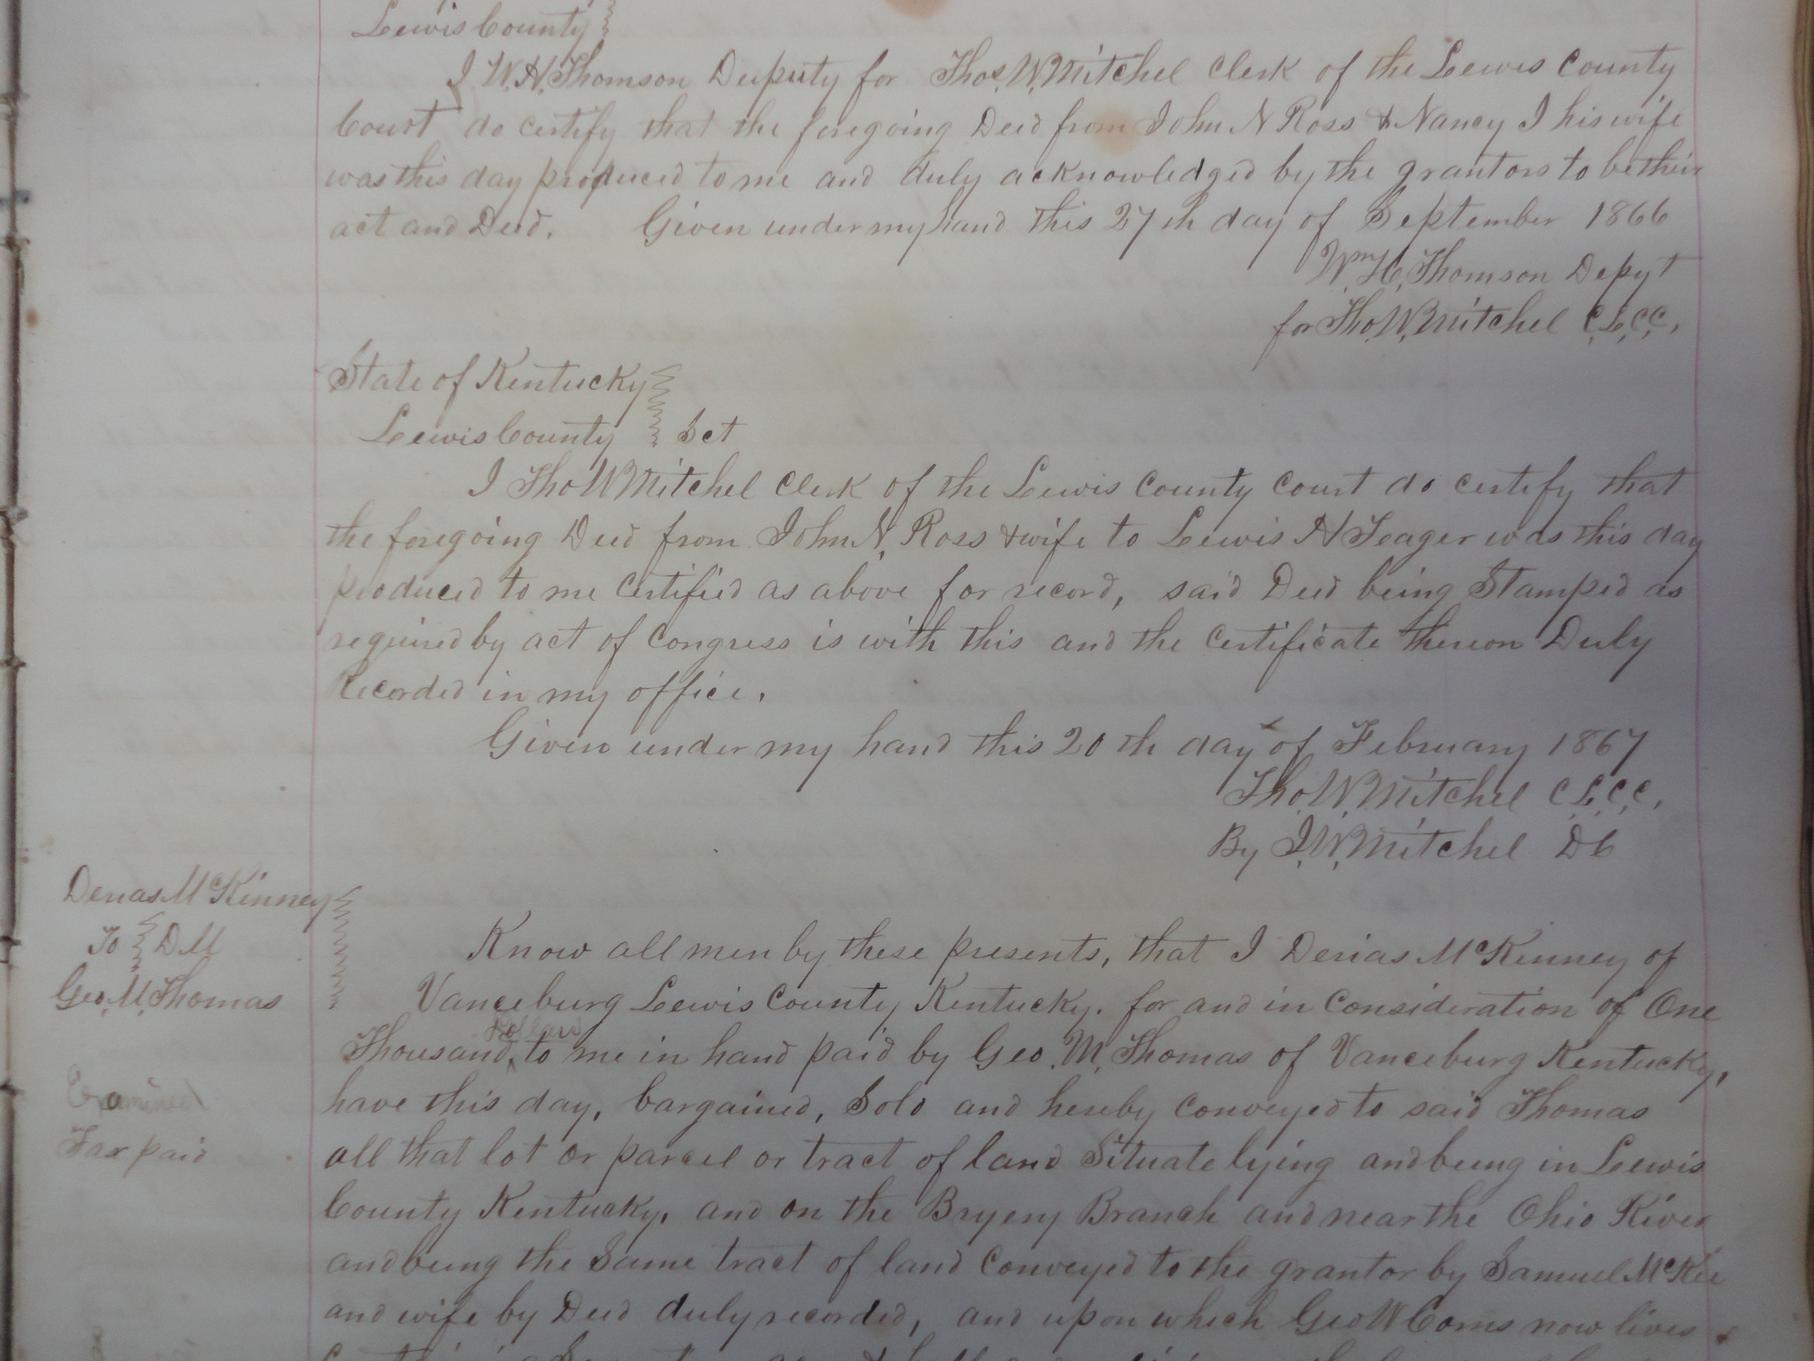 Lewis County
I W.H. Thomson Deuputy for Thos. W. Mitchel Clerk of the Lewis County
Court do certify that the foregoing Deed from John N Ross & Nancy I his wife
was this day produced to me and duly acknowledged by the grantors to be their
act and Deed. Given under my hand this 27th day of September 1866
Wm. H. Thomson Depyt
for Tho. W. Mitchel C.L.C.C.
State of Kentucky
Lewis County Sct
I Tho W Mitchel Clerk of the Lewis County Court do certify that
the foregoing Deed from John N. Ross & wife to Lewis H Teager was this day
produced to me Certified as above for record, said Deed being Stamped as
required by act of Congress is with this and the Certificate thereon Duly
Recorded in my office.
Given under my hand this 20th day of February 1867
Tho. W. Mitchel C.L.C.C.
By J. W. Mitchel DC
Denas McKinney
To D M
Geo. M. Thomas
Examined
Tax paid
Know all men by these presents, that I Denas McKinney of
Vanceburg Lewis County Kentucky. for and in Consideration of One
Thousand, Dollars to me in hand paid by Geo. M. Thomas of Vanceburg Kentucky,
have this day, bargained, Sold and hereby Conveyed to said Thomas
all that lot or parcel or tract of land Situate lying and being in Lewis
County Kentucky, and on the Bryery Branch and near the Ohio River
and being the Same tract of land Conveyed to the grantor by Samuel McKee
and wife by Deed duly recorded, and upon which Geo W Coms now lives